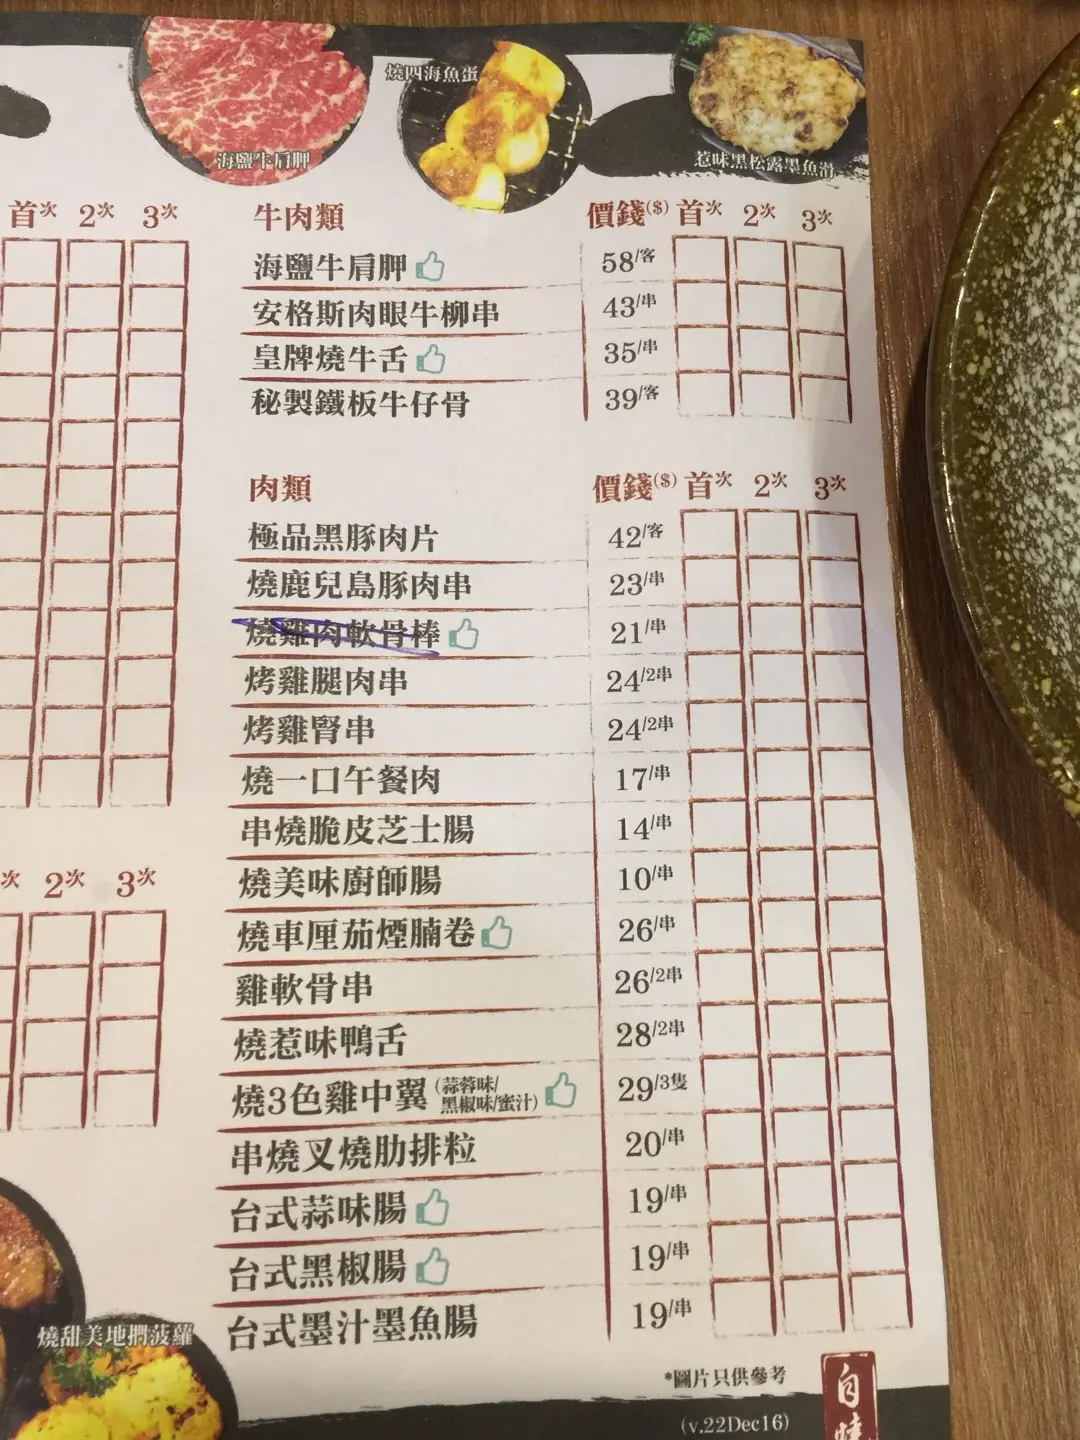 海鹽牛肩胛
燒四海魚蛋
惹味黑松露墨魚滑
首次 2次 3次
牛肉類 價錢($) 首次 2次 3次
海鹽牛肩胛 58/客
安格斯肉眼牛柳串 43/串
皇牌燒牛舌 35/串
秘製鐵板牛仔骨 39/客
肉類 價錢($) 首次 2次 3次
極品黑豚肉片 42/客
燒鹿兒島豚肉串 23/串
燒雞肉軟骨棒 21/串
烤雞腿肉串 24/2串
烤雞腎串 24/2串
燒一口午餐肉 17/串
串燒脆皮芝士腸 14/串
燒美味廚師腸 10/串
次 2次 3次
燒車厘茄煙腩卷 26/串
雞軟骨串 26/2串
燒惹味鴨舌 28/2串
燒3色雞中翼 (蒜蓉味/黑椒味/蜜汁) 29/3隻
串燒叉燒肋排粒 20/串
台式蒜味腸 19/串
台式黑椒腸 19/串
台式墨汁墨魚腸 19/串
燒甜美地捫菠蘿
*圖片只供參考
(v.22Dec16)
自燒